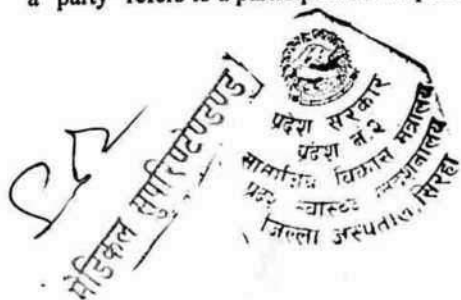 a "party" refers to a
मेडिकल सुपरिण्टेण्डेण्ड
प्रदेश सरकार
प्रदेश नं. २
सामाजिक विकास मन्त्रालय
प्रदेश स्वास्थ्य निर्देशनालय
जिल्ला अस्पताल, सिरहा